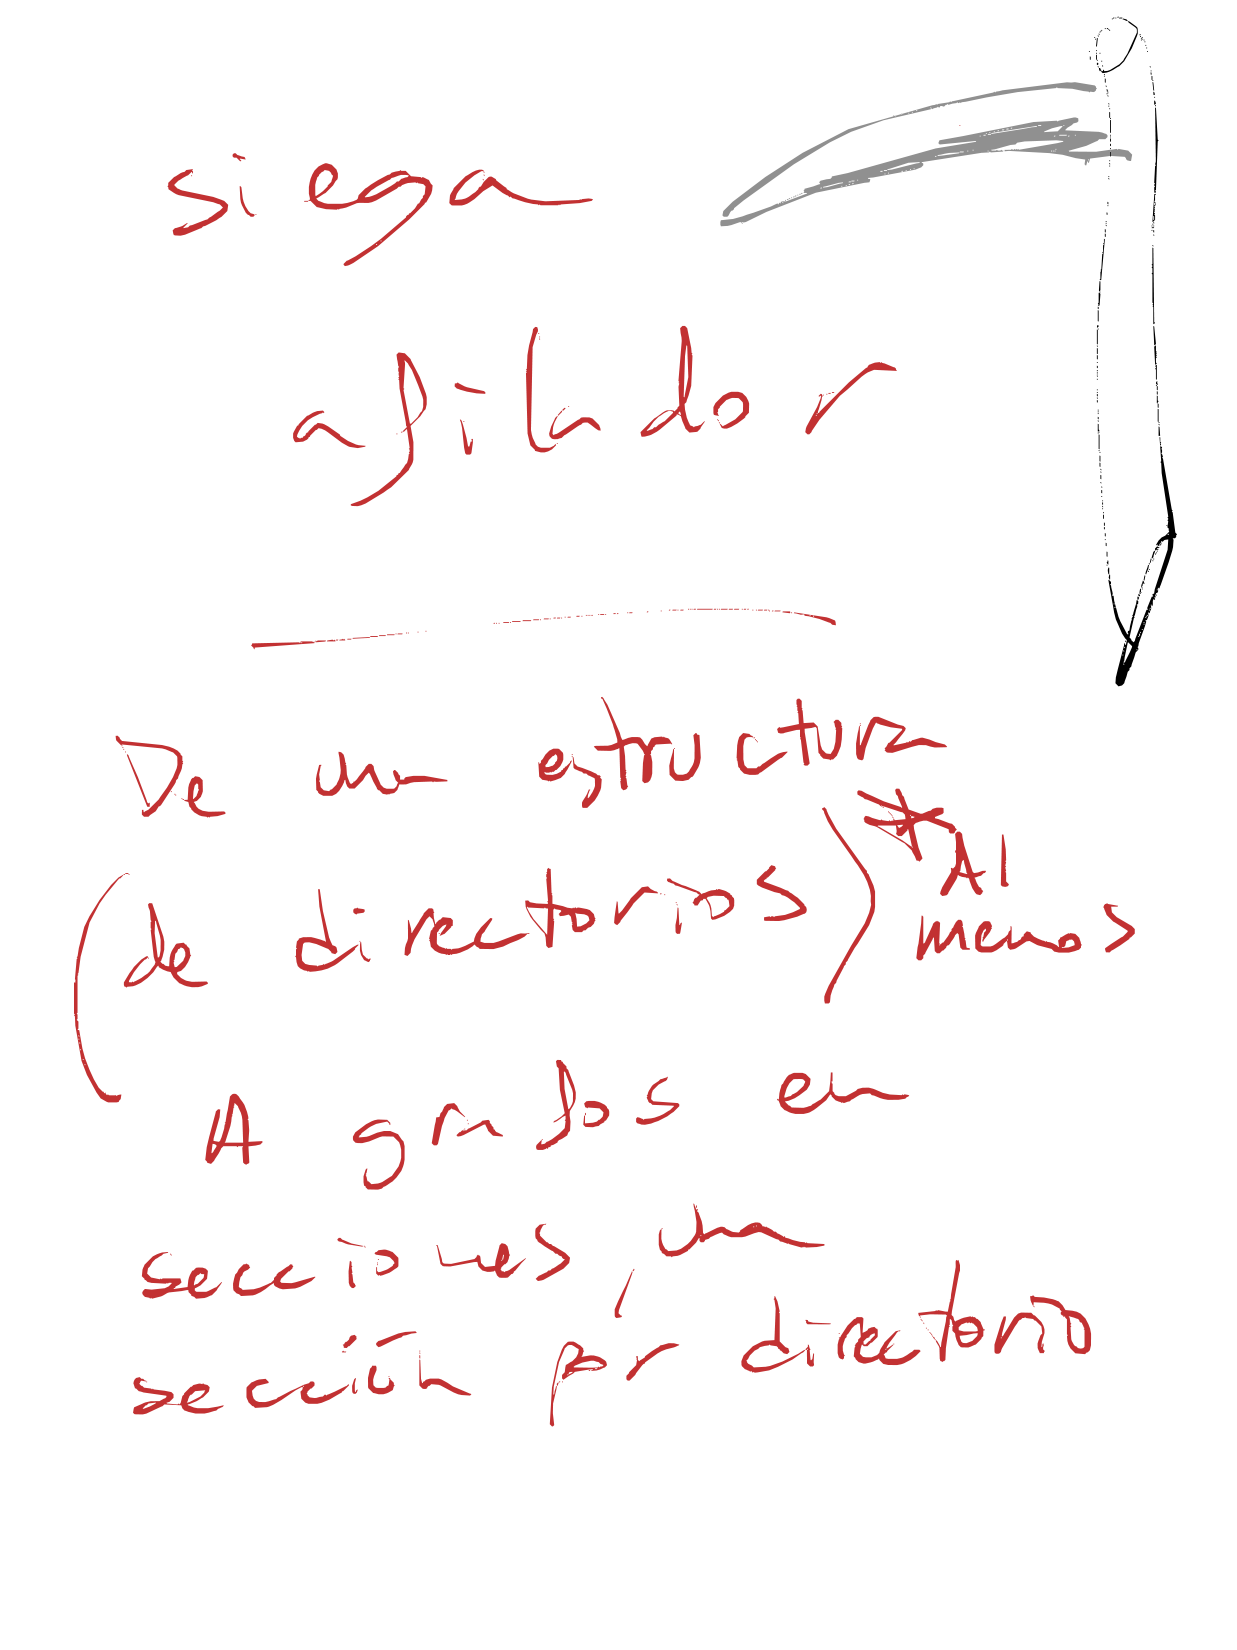 siega
afilador
De una estructura
(de directorios) * Al
menos
A grafos en
secciones, una
sección por directorio